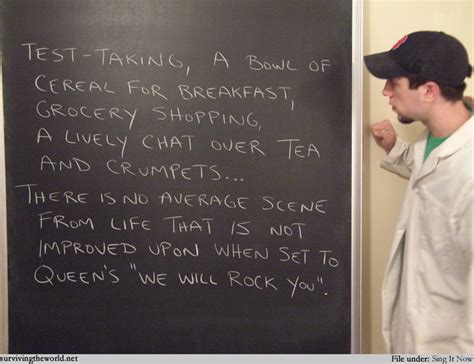 TEST-TAKING, A BOWL OF
CEREAL FOR BREAKFAST,
GROCERY SHOPPING,
A LIVELY CHAT OVER TEA
AND CRUMPETS...
THERE IS NO AVERAGE SCENE
FROM LIFE THAT IS NOT
IMPROVED UPON WHEN SET TO
QUEEN'S "WE WILL ROCK YOU".
survivingtheworld.net
File under: Sing It Now